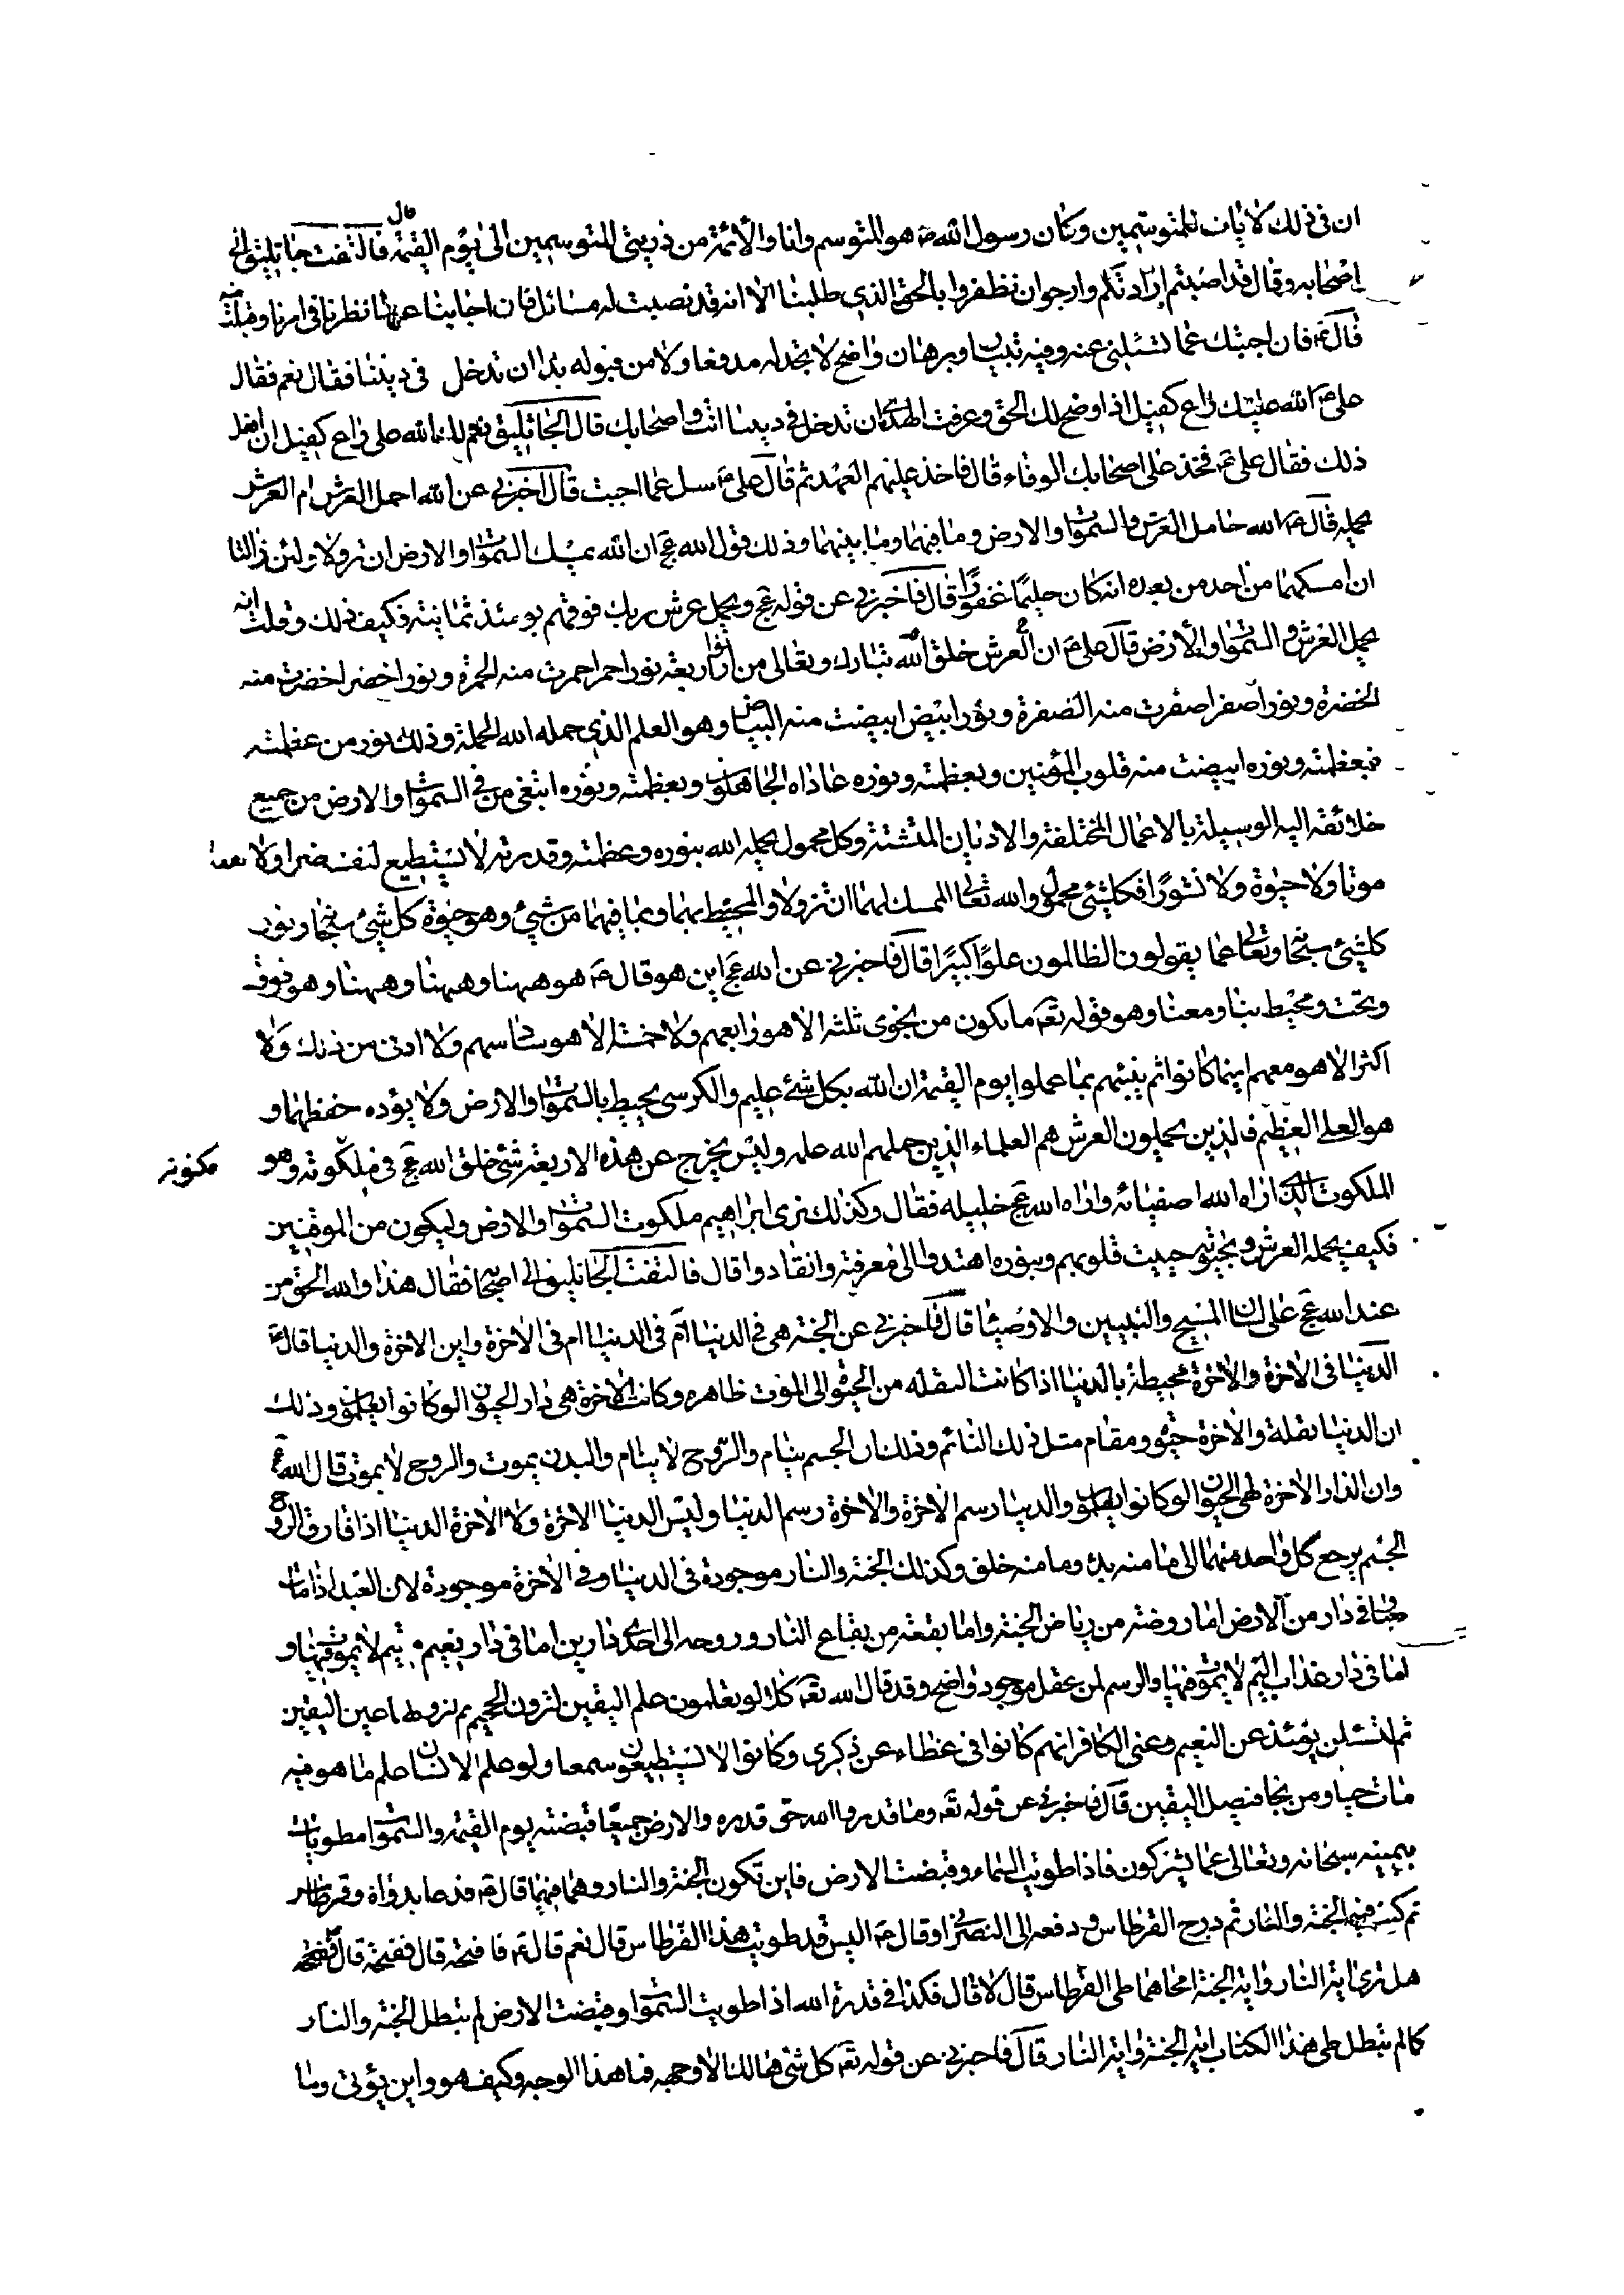 ان فى ذلك لايات للمتوسمين وكان رسول الله ص هو المتوسم وانا والأئمة من ذريتى المتوسمين الى يوم القيمة قال فالتفت جاثليق الى
اصحابه وقال قد اصبتم ارادتكم وارجو ان تظفروا بالحق الذى طلبنا الا انه قد نصبت له مسائل فان اجابنا عنها نظرنا فى امرنا وقبلت منه
قال ع فان اجبتك عما تسئلنى عنه وفيه تبيان وبرهان واضح لا تجد له مدفعا ولا من قبوله بدا ان تدخل فى ديننا فقال نعم فقال
على ع الله عليك راع كفيل اذا وضح لك الحق وعرفت الهدى ان تدخل فى ديننا انت واصحابك قال الجاثليق نعم لك الله على راع كفيل ان افعل
ذلك فقال على ع فخذ على اصحابك الوفاء قال فاخذ عليهم العهد ثم قال على ع سل عما احببت قال اخبرنى عن الله احمل العرش ام العرش
يحمله قال ع الله حامل العرش والسموات والارض وما فيهما وما بينهما وذلك قول الله عج ان الله يمسك السموات والارض ان تزولا ولئن زالتا
ان امسكهما من احد من بعده انه كان حليما غفورا قال فاخبرنى عن قوله عج ويحمل عرش ربك فوقهم يومئذ ثمانية فكيف ذلك وقلت انه
يحمل العرش والسموات والأرض قال على ع ان العرش خلق الله تبارك وتعالى من انوار اربعة نور احمر احمرت منه الحمرة ونور اخضر اخضرت منه
الخضرة ونور اصفر اصفرت منه الصفرة ونور ابيض ابيضت منه البياض وهو العلم الذى حمله الله الحملة وذلك نور من عظمته
فبعظمته ونوره ابيضت منه قلوب المؤمنين وبعظمته ونوره عاداه الجاهلون وبعظمته ونوره ابتغى من فى السموات والارض من جميع
خلائقه اليه الوسيلة بالاعمال المختلفة والاديان المتشتتة وكل محمول يحمله الله بنوره وعظمته وقدرته لا يستطيع لنفسه ضرا ولا نفعا
موتا ولا حيوة ولا نشورا فكلشئ محمول والله تعالى الممسك لهما ان تزولا والمحيط بهما وبما فيهما من شئ وهو حيوة كل شئ سبحانه ونور
كلشئ سبحانه وتعالى عما يقولون الظالمون علوا كبيرا قال فاخبرنى عن الله عج اين هو قال ع هو ههنا وههنا وههنا وهو فوق
وتحت ومحيط بنا ومعنا وهو قوله تعه ما يكون من نجوى ثلثة الا هو رابعهم ولا خمسة الا هو سادسهم ولا ادنى من ذلك ولا
اكثر الا هو معهم اينما كانوا ثم ينبئهم بما عملوا يوم القيمة ان الله بكل شئ عليم والكرسى يحيط بالسموات والارض ولا يؤده حفظهما و
هو العلى العظيم فالذين يحملون العرش هم العلماء الذين حملهم الله علمه وليس يخرج عن هذه الاربعة شئ خلق الله عج فى ملكوته وهو
مكنونه
الملكوت الذى اراه الله اصفيائه واراه الله عج خليله فقال وكذلك نرى ابراهيم ملكوت السموات والارض وليكون من الموقنين
فكيف يحمله العرش وبحيوته حييت قلوبهم وبنوره اهتدوا الى معرفته وانقادوا قال فالتفت الجاثليق الى اصحابه فقال هذا والله الحق من
عند الله عج على لسان المسيح والنبيين والاوصياء قال فاخبرنى عن الجنة هى فى الدنيا ام فى الاخرة واين الاخرة والدنيا قال ع
الدنيا فى الاخرة والأخرة محيطة بالدنيا اذا كانت النقله من الحيوة الى الموت ظاهره وكانت الاخرة هى دار الحيوان لو كانوا يعلمون وذلك
ان الدنيا نقلة والاخرة حيوة ومقام مثل ذلك النائم وذلك ان الجسم ينام والروح لا ينام والبدن يموت والروح لا يموت قال الله عج
وان الدار الاخرة لهى الحيوان لو كانوا يعلمون والدنيا رسم الاخرة والاخرة رسم الدنيا وليس الدنيا الاخرة ولا الاخرة الدنيا اذا فارق الروح
الجسم يرجع كل واحد منهما الى ما منه بدء وما منه خلق وكذلك الجنة والنار موجودة فى الدنيا وفى الاخرة موجودة لان العبد اذا مات
صار فى دار من الارض اما روضة من رياض الجنة واما بقعة من بقاع النار وروحه الى احدى دارين اما فى دار نعيم مقيم لا يموت فيها و
اما فى دار عذاب اليم لا يموت فيها والرسم لمن عقل موجود واضح وقد قال الله تعه كلا لو تعلمون علم اليقين لترون الجحيم ثم لترونها عين اليقين
ثم لتسئلن يومئذ عن النعيم وعنى الكافر انهم كانوا فى غطاء عن ذكرى وكانوا لا يستطيعون سمعا ولو علم الانسان علم ما هو فيه
مات حيا ومن نجا فبفضل اليقين قال فاخبرنى عن قوله تعه وما قدروا الله حق قدره والارض جميعا قبضته يوم القيمة والسموات مطويات
بيمينه سبحانه وتعالى عما يشركون فاذا طويت السماء وقبضت الارض فاين تكون الجنة والنار وهما فيهما قال ع فدعا بدواة وقرطاس
ثم كتب فيه الجنة والنار ثم درج القرطاس ودفعه الى النصرانى وقال ع اليس قد طويت هذا القرطاس قال نعم قال ع فافتحه قال ففتحه قال
هل ترى اية النار واية الجنة امحاهما طى القرطاس قال لا قال فكذا فى قدرة الله اذا طويت السموات وقبضت الارض لم تبطل الجنة والنار
كما لم تبطل طى هذا الكتاب اية الجنة واية النار قال فاخبرنى عن قوله تعه كل شئ هالك الا وجهه فما هذا الوجه وكيف هو واين يؤتى وما